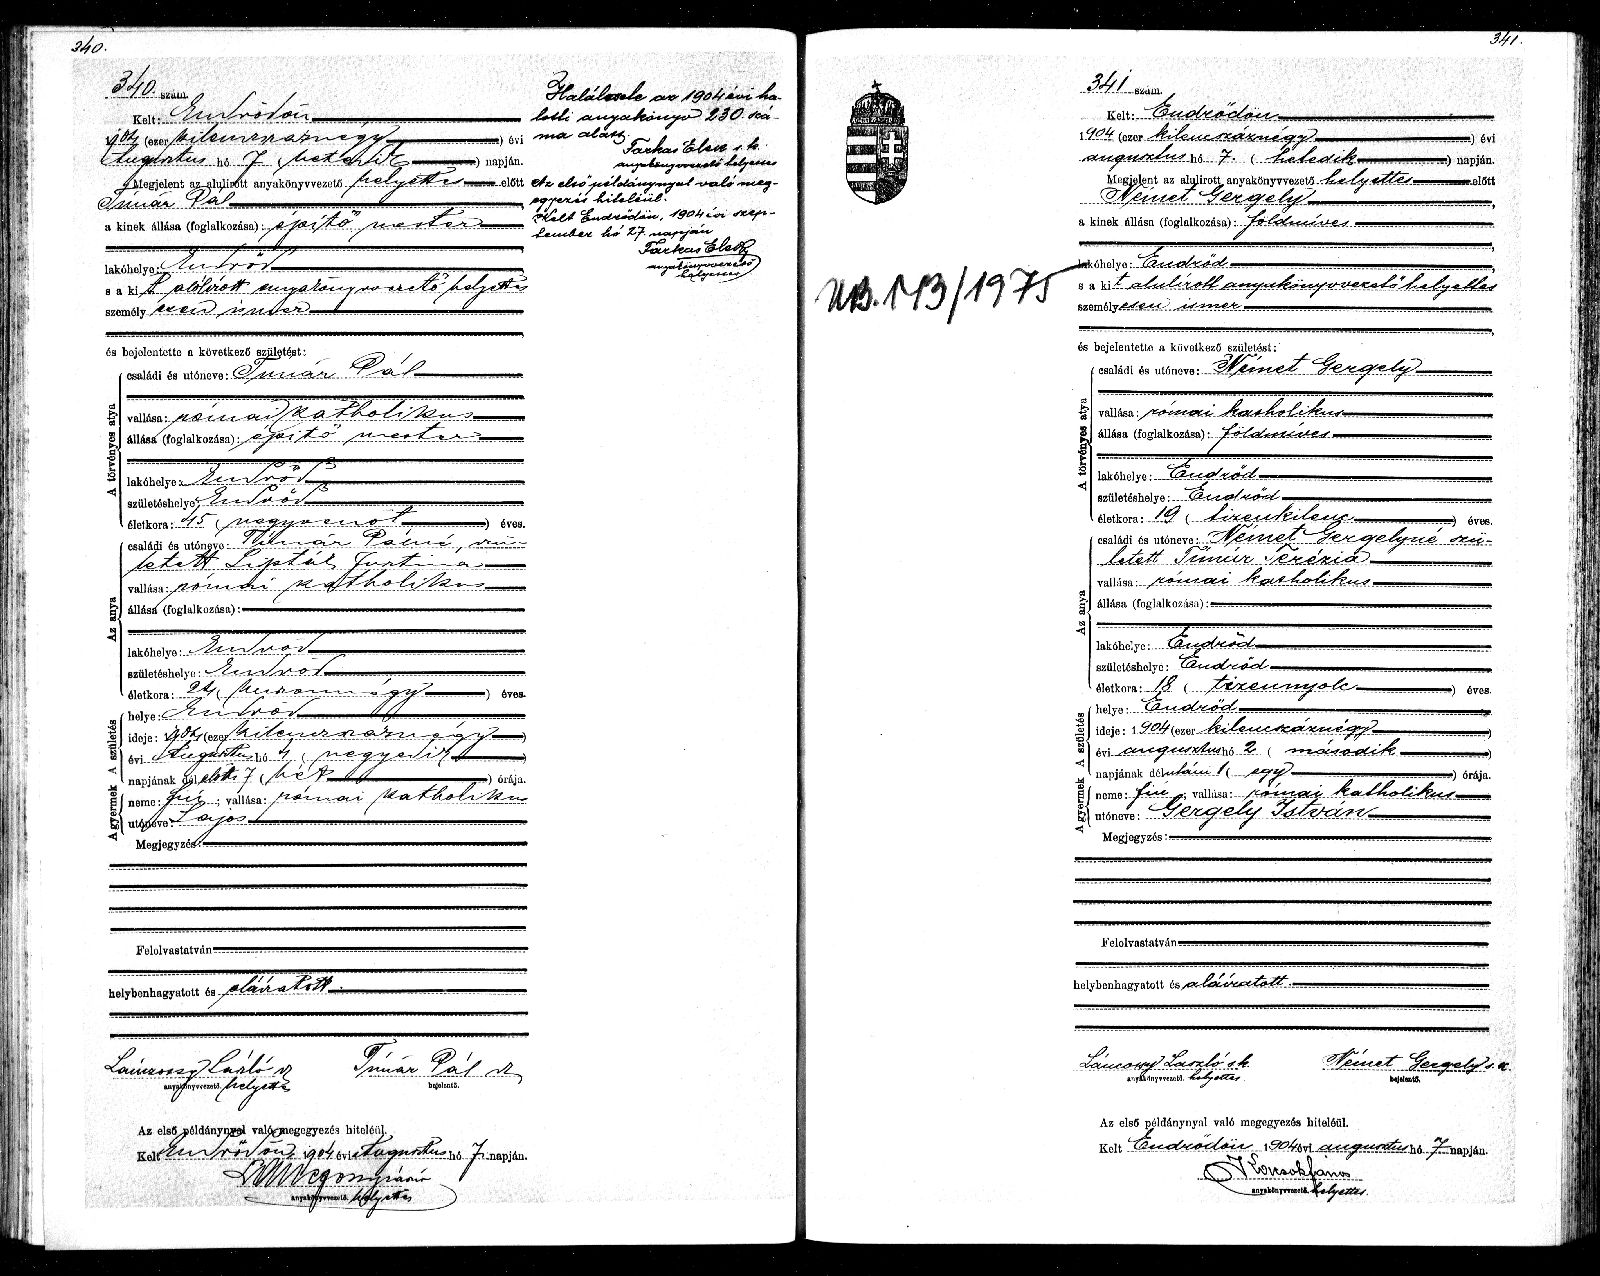 340.
340. szám.
Kelt: Endrődön
1904 (ezer kilencszáznégy) évi
Augustus hó 7 (hetedik) napján.
Megjelent az alulirott anyakönyvvezető helyettes előtt
Tímár Pál
a kinek állása (foglalkozása): építő mester
lakóhelye: Endrőd
s a kit alulirott anyakönyvvezető helyettes
személyesen ismer
és bejelentette a következő születést:
A törvényes atya
családi és utóneve: Tímár Pál
vallása: római katholikus
állása (foglalkozása): építő mester
lakóhelye: Endrőd
születéshelye: Endrőd
életkora: 45 (negyvenöt) éves.
Az anya
családi és utóneve: Tímár Pálné, szü-
letett Lipták Jusztina
vallása: római katholikus
állása (foglalkozása):
lakóhelye: Endrőd
születéshelye: Endrőd
életkora: 24 (huszonnégy) éves.
A születés
helye: Endrőd
ideje: 1904 (ezer kilencszáznégy)
évi Augustus hó 4 (negyedik)
napjának dél előtt 7 (hét) órája.
A gyermek
neme: fiú; vallása: római katholikus
utóneve: Lajos
Megjegyzés:
Felolvastatván
helybenhagyatott és aláiratott.
László
anyakönyvvezető. helyettes
Tímár Pál
bejelentő.
Az első példánynyal való megegyezés hiteléül.
Kelt Endrődön, 1904 évi Augustus hó 7 napján.
anyakönyvvezető. helyettes
Halálesete az 1904 évi ha-
lotti anyakönyv 230. szá-
ma alatt
Farkas Elek s. k.
anyakönyvvezető helyettes
Az első példánynyal való meg-
egyezés hiteléül.
Kelt Endrődön, 1904 évi szep-
tember hó 27 napján
Farkas Elek
anyakönyvvezető
helyettes
341.
341 szám.
Kelt: Endrődön
1904 (ezer kilenczáznégy) évi
augusztus hó 7. (hetedik) napján.
Megjelent az alulirott anyakönyvvezető helyettes előtt
Német Gergely
a kinek állása (foglalkozása): földmíves
lakóhelye: Endrőd
s a kit alulirott anyakönyvvezető helyettes
személyesen ismer
ub. 113/1975
és bejelentette a következő születést:
A törvényes atya
családi és utóneve: Német Gergely
vallása: római katholikus
állása (foglalkozása): földmíves
lakóhelye: Endrőd
születéshelye: Endrőd
életkora: 19 (tizenkilenc) éves.
Az anya
családi és utóneve: Német Gergelyné szü-
letett Tímár Terézia
vallása: római katholikus
állása (foglalkozása):
lakóhelye: Endrőd
születéshelye: Endrőd
életkora: 18 (tizennyolc) éves.
A születés
helye: Endrőd
ideje: 1904 (ezer kilenczáznégy)
évi augusztus hó 2 (második
napjának délután 1 (egy) órája.
A gyermek
neme: fiú; vallása: római katholikus
utóneve: Gergely István
Megjegyzés:
Felolvastatván
helybenhagyatott és aláiratott.
László sk
anyakönyvvezető. helyettes.
Német Gergely s. k.
bejelentő.
Az első példánynyal való megegyezés hiteléül.
Kelt Endrődön, 1904 évi augusztus hó 7 napján.
anyakönyvvezető. helyettes.